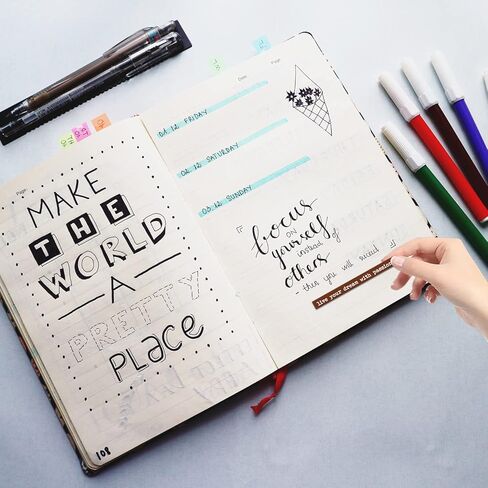 Page:
MAKE
THE
WORLD
A
PRETTY
PLACE
108
Date:
Page:
01.12 FRIDAY
02.12 SATURDAY
03.12 SUNDAY
focus
ON
yourself
instead of
others
then you will succeed
live your dream with passion